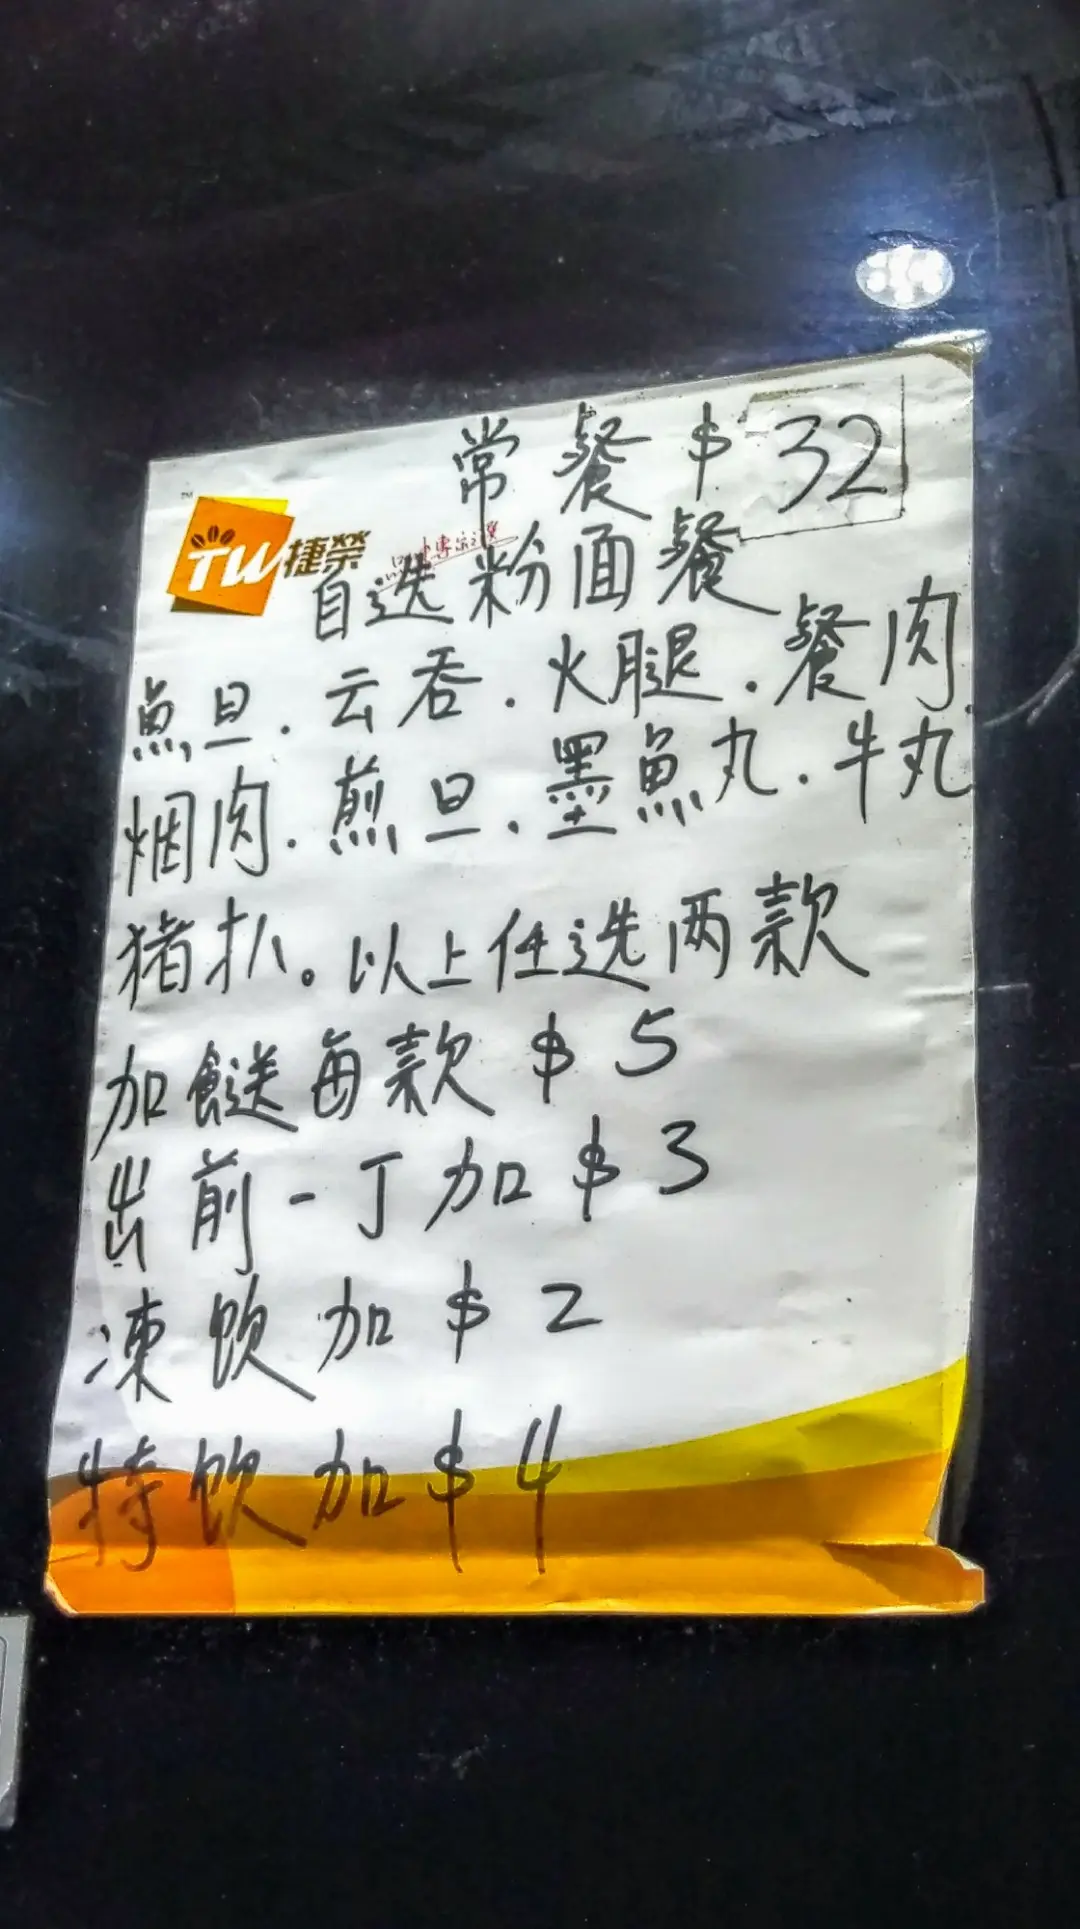 常餐 $32
TM
TW 捷榮
自选粉面餐
魚旦.云吞.火腿.餐肉.
烟肉.煎旦.墨魚丸.牛丸
猪扒。以上任选两款
加餸每款 $5
出前一丁加 $3
凍飲加 $2
特飲加 $4